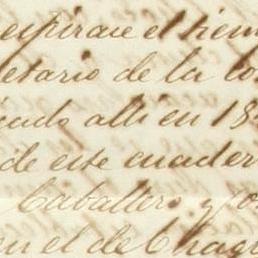 espirase el tiem
etario de la co
iendo alli en 18
de este cuader
Caballero y o
en el de Chag